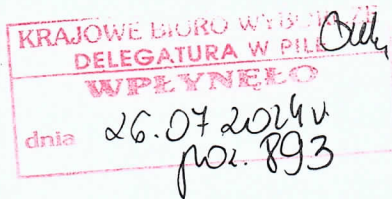 KRAJOWE BIURO WYBORCZE
DELEGATURA W PILE
WPŁYNĘŁO
dnia 26.07.2024 r
poz. 893